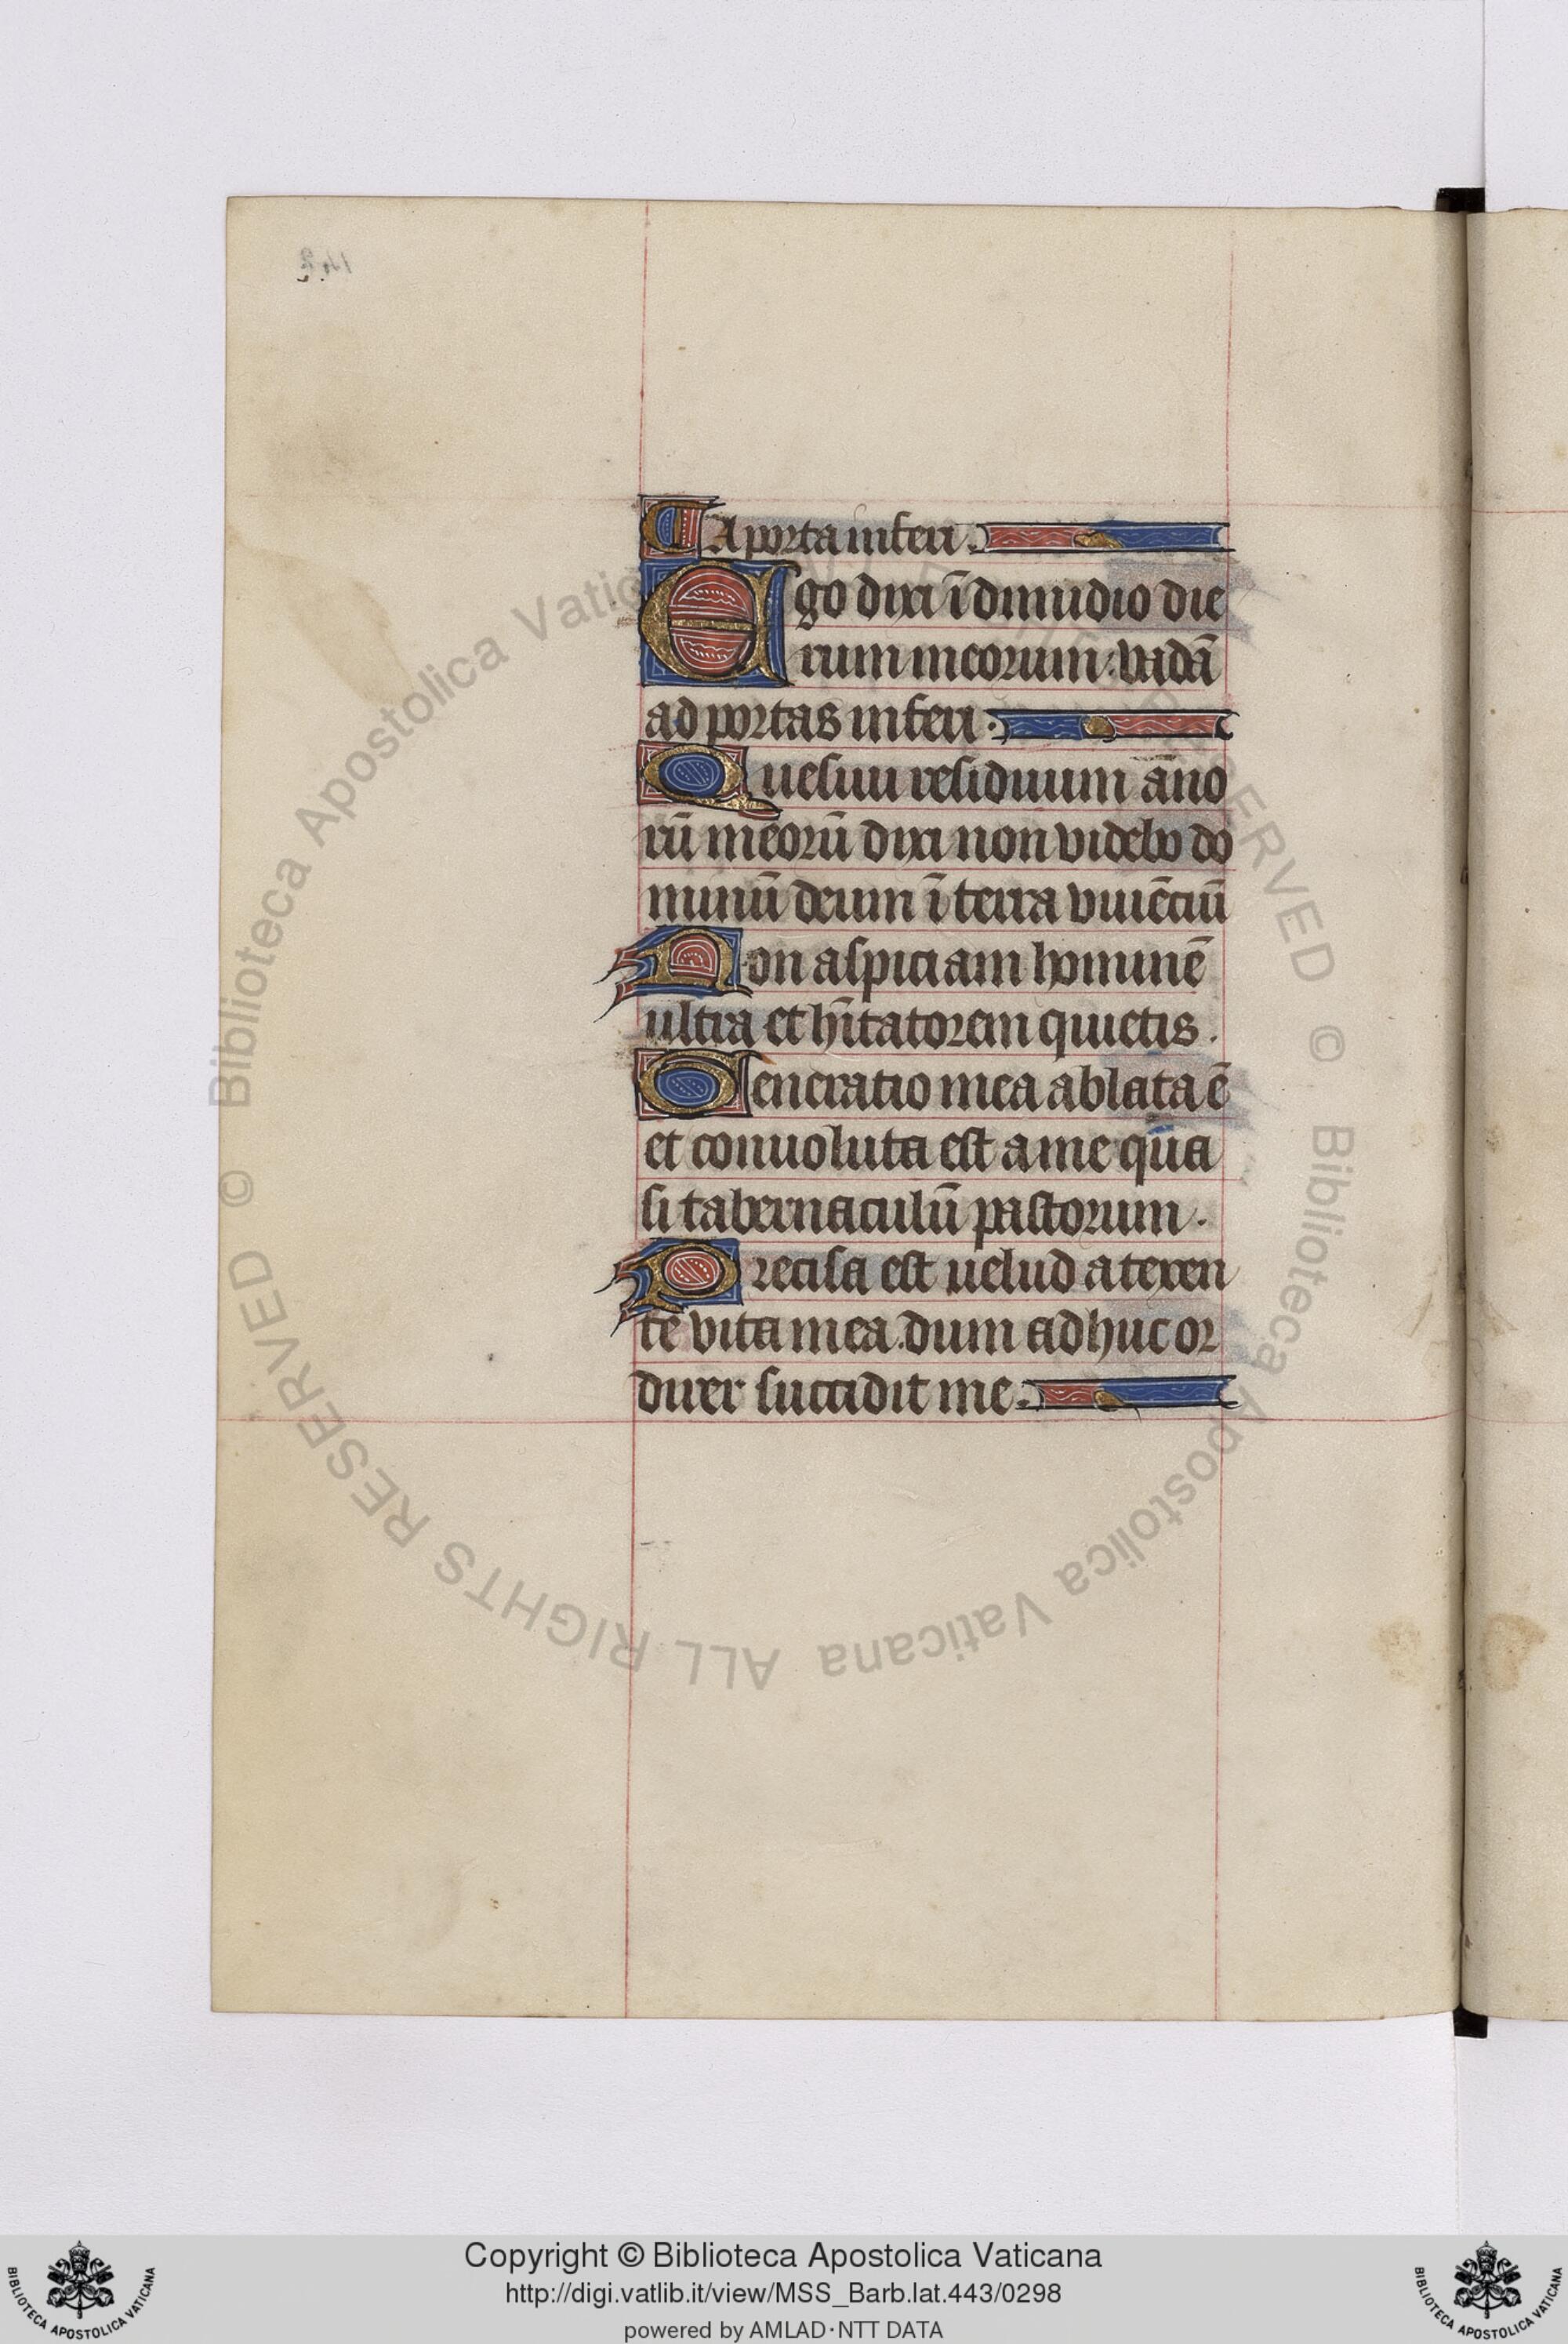 A porta inferi.
Ego dixi ī dimidio die
rum meorum: vadā
ad portas inferi.
Quesiui residuum āno
rū meorū dixi non videbo do
minū deum ī terra viuēciū
Non aspiciam hominē
ultra et hītatorem quietis.
Generatio mea ablata ē
et conuoluta est a me qua
si tabernaculū pastorum.
Precisa est uelud a texen
te vita mea. dum adhuc or
direr succidit me.
© Biblioteca Apostolica Vaticana ALL RIGHTS RESERVED © Biblioteca Apostolica Vaticana ALL RIGHTS RESERVED
Copyright © Biblioteca Apostolica Vaticana
http://digi.vatlib.it/view/MSS_Barb.lat.443/0298
powered by AMLAD·NTT DATA
BIBLIOTECA APOSTOLICA VATICANA
BIBLIOTECA APOSTOLICA VATICANA